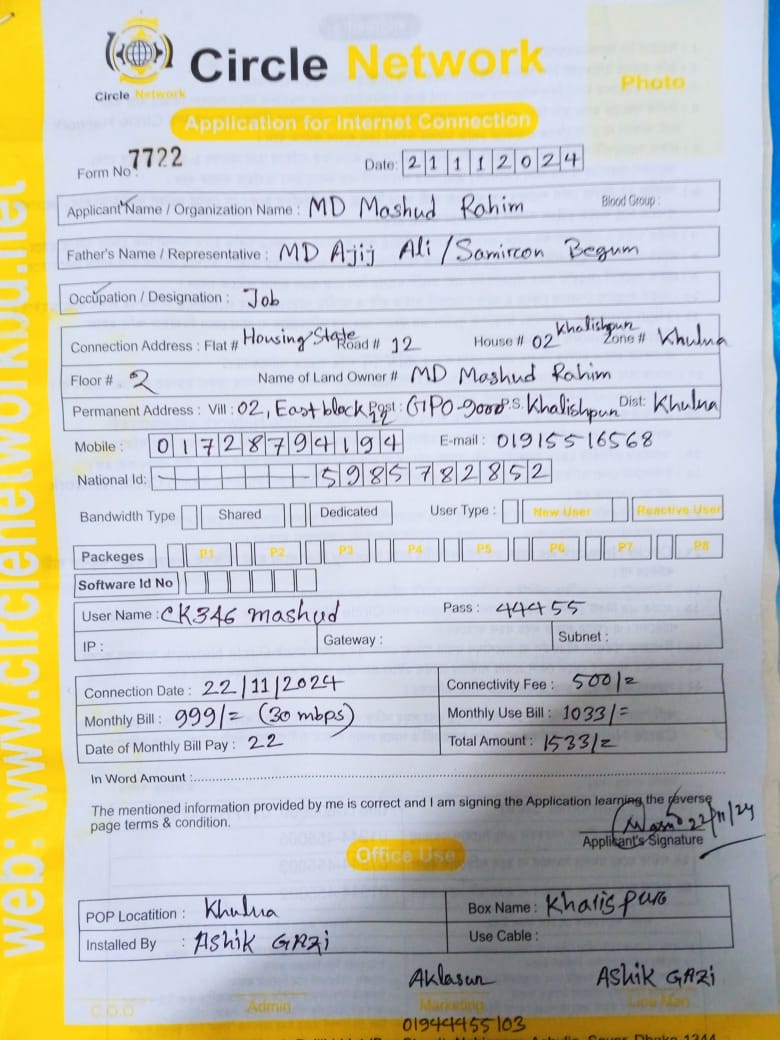 Circle Network
Circle Network
Photo
Application for Internet Connection
Form No : 7722
Date: 21112024
Applicant Name / Organization Name : MD Mashud Rahim Blood Group :
Father's Name / Representative : MD Ajij Ali / Samircon Begum
Occupation / Designation : Job
Connection Address : Flat # Housing State Road # 12 House # 02 Khalishpur Zone # Khulna
Floor # 2 Name of Land Owner # MD Mashud Rahim
Permanent Address : Vill : 02, East block 12 Post : GPO-9000 P.S. Khalishpur Dist: Khulna
Mobile : 01728794194 E-mail : 01915516568
National Id: 5985782852
Bandwidth Type Shared Dedicated User Type : New User Reactive User
Packeges P1 P2 P3 P4 P5 P6 P7 P8
Software Id No
User Name : CK346 mashud Pass : 44455
IP : Gateway : Subnet :
Connection Date : 22/11/2024 Connectivity Fee : 500/=
Monthly Bill : 999/= (30 mbps) Monthly Use Bill : 1033/=
Date of Monthly Bill Pay : 22 Total Amount : 1533/=
In Word Amount :
The mentioned information provided by me is correct and I am signing the Application learning the reverse
page terms & condition.
22/11/24
Applicant's Signature
Office Use
POP Locatition : Khulna Box Name : Khalispur
Installed By : Ashik GAZi Use Cable :
Aklasur ASHiK GAZi
C.O.O Admin Marketing Line Man
01944455103
web: www.circlenetworkbd.net